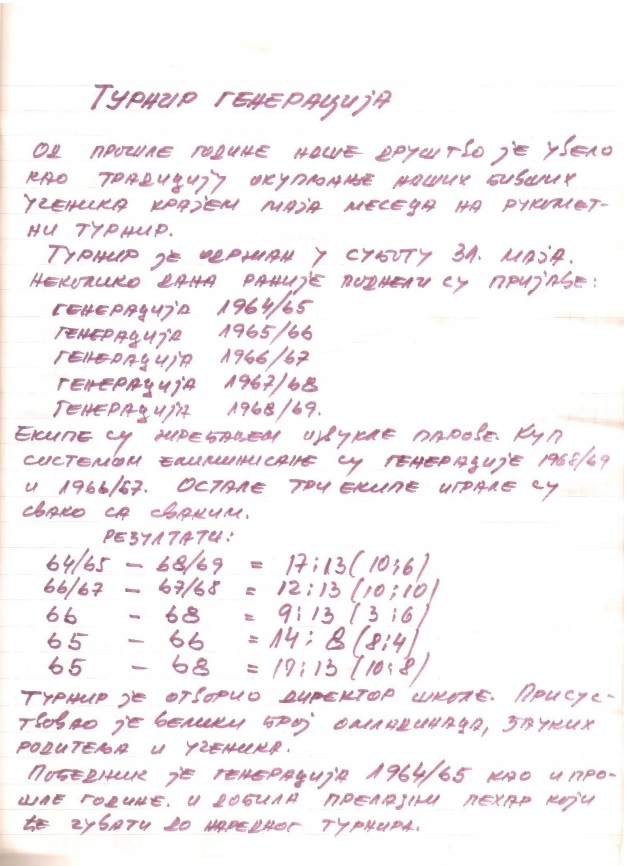 ТУРНИР ГЕНЕРАЦИЈА
ОД ПРОШЛЕ ГОДИНЕ НАШЕ ДРУШТВО ЈЕ УВЕЛО
КАО ТРАДИЦИЈУ ОКУПЉАЊЕ НАШИХ БИВШИХ
УЧЕНИКА КРАЈЕМ МАЈА МЕСЕЦА НА РУКОМЕТ-
НИ ТУРНИР.
ТУРНИР ЈЕ ОДРЖАН У СУБОТУ 31. МАЈА.
НЕКОЛИКО ДАНА РАНИЈЕ ПОДНЕЛИ СУ ПРИЈАВЕ:
ГЕНЕРАЦИЈА 1964/65
ГЕНЕРАЦИЈА 1965/66
ГЕНЕРАЦИЈА 1966/67
ГЕНЕРАЦИЈА 1967/68
ГЕНЕРАЦИЈА 1968/69.
ЕКИПЕ СУ ЖРЕБАЊЕМ ИЗВУКЛЕ ПАРОВЕ. КУП
СИСТЕМОМ ЕЛИМИНИСАНЕ СУ ГЕНЕРАЦИЈЕ 1968/69
И 1966/67. ОСТАЛЕ ТРИ ЕКИПЕ ИГРАЛЕ СУ
СВАКО СА СВАКИМ.
РЕЗУЛТАТИ:
64/65 - 68/69 = 17:13 (10:6)
66/67 - 67/68 = 12:13 (10:10)
66 - 68 = 9:13 (3:6)
65 - 66 = 14:8 (8:4)
65 - 68 = 17:13 (10:8)
ТУРНИР ЈЕ ОТВОРИО ДИРЕКТОР ШКОЛЕ. ПРИСУС-
ТВОВАО ЈЕ ВЕЛИКИ БРОЈ ОМЛАДИНАЦА, ЂАЧКИХ
РОДИТЕЉА И УЧЕНИКА.
ПОБЕДНИК ЈЕ ГЕНЕРАЦИЈА 1964/65 КАО И ПРО-
ШЛЕ ГОДИНЕ. И ДОБИЛА ПРЕЛАЗНИ ПЕХАР КОЈИ
ЋЕ ЧУВАТИ ДО НАРЕДНОГ ТУРНИРА.